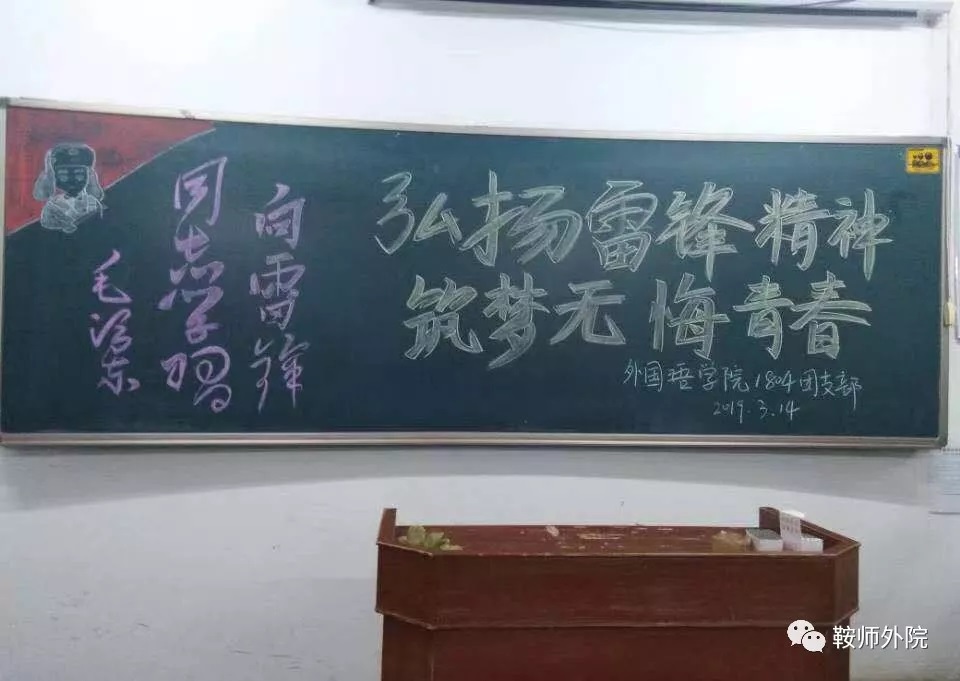 向雷锋
同志学习
毛泽东
弘扬雷锋精神
筑梦无悔青春
外国语学院1804团支部
2019.3.14
鞍师外院